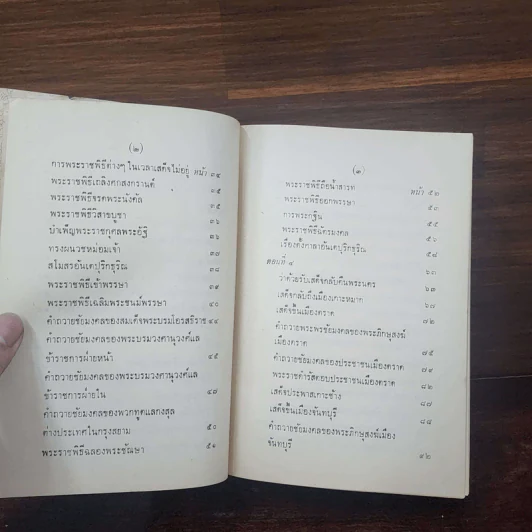 (๒)
การพระราชพิธีต่างๆ ในเวลาเสด็จไม่อยู่ หน้า ๓๔
พระราชพิธีเถลิงศกสงกรานต์ ๓๕
พระราชพิธีจรดพระนังคัล ๓๕
พระราชพิธีวิสาขบูชา ๓๖
บำเพ็ญพระราชกุศลพระอัฐิ ๓๗
ทรงผนวชหม่อมเจ้า ๓๗
สโมสรอันเตปุริกธุริณ ๓๘
พระราชพิธีเข้าพรรษา ๓๙
พระราชพิธีเฉลิมพระชนม์พรรษา ๔๐
คำถวายชัยมงคลของสมเด็จพระบรมโอรสธิราช ๔๔
คำถวายชัยมงคลของพระบรมวงศานุวงศ์แล
ข้าราชการฝ่ายหน้า ๔๕
คำถวายชัยมงคลของพระบรมวงศานุวงศ์แล
ข้าราชการฝ่ายใน ๔๗
คำถวายชัยมงคลของพวกทูตแลกงสุล
ต่างประเทศในกรุงสยาม ๕๐
พระราชพิธีฉลองพระชัณษา ๕๑
(๓)
พระราชพิธีถือน้ำสารท หน้า ๕๒
พระราชพิธีออกพรรษา ๕๓
การพระกฐิน ๕๕
พระราชพิธีฉัตรมงคล ๕๖
เรื่องตั้งกาลาอันเตปุริกธุริณ ๕๘
ตอนที่ ๔ ๖๓
ว่าด้วยรับเสด็จกลับคืนพระนคร ๖๓
เสด็จกลับถึงเมืองเกาะหมาก ๖๗
เสด็จขึ้นเมืองตราด ๗๒
คำถวายพระพรชัยมงคลของพระภิกษุสงฆ์
เมืองตราด ๗๕
คำถวายชัยมงคลของประชาชนเมืองตราด ๗๙
พระราชดำรัสตอบประชาชนเมืองตราด ๘๒
เสด็จประพาสเกาะช้าง ๘๗
เสด็จขึ้นเมืองจันทบุรี ๘๘
คำถวายชัยมงคลของพระภิกษุสงฆ์เมือง
จันทบุรี ๙๒